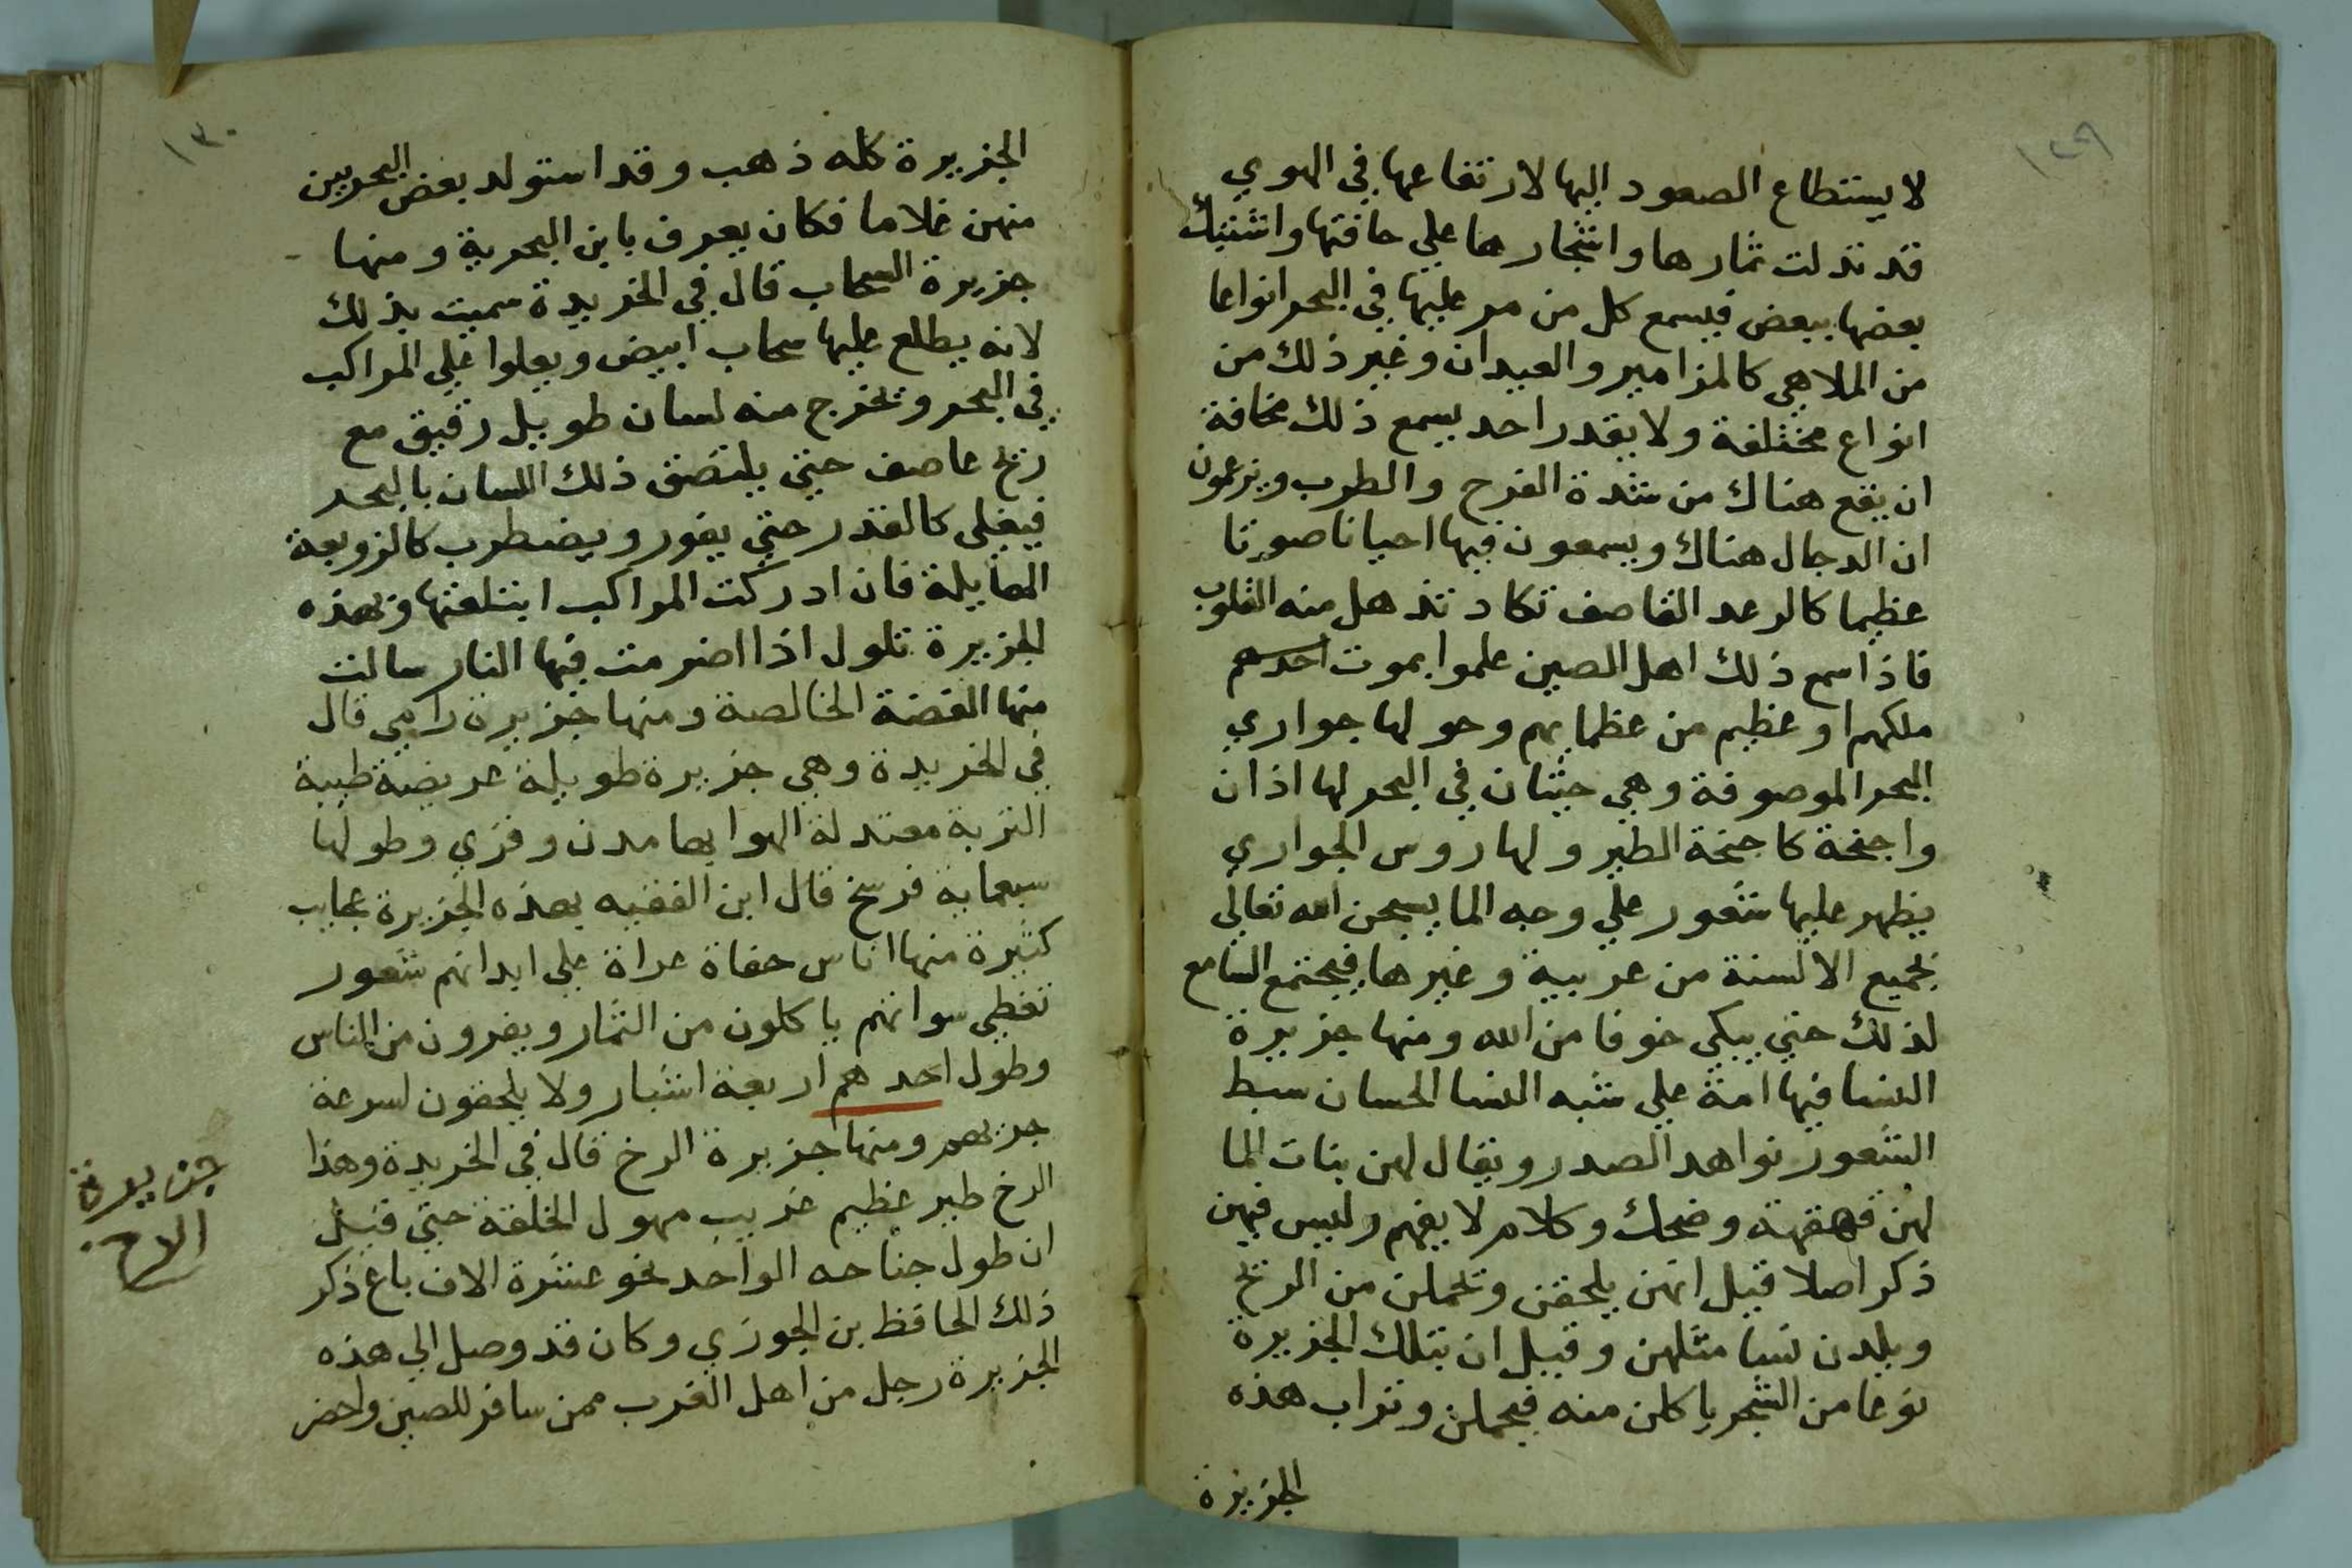 ١٢٩
لا يستطاع الصعود اليها لارتفاعها في الهوي
قد تدلت ثمارها واشجارها علي حافتها واشتبك
بعضها ببعض فيسمع كل من مر عليها في البحر انواعا
من الملاهي كالمزامير والعيدان وغير ذلك من
انواع مختلفة ولا يقدر احد يسمع ذلك مخافة
ان يقع هناك من شدة الفرح والطرب ويزعمون
ان الدجال هناك ويسمعون فيها احيانا صوتا
عظيما كالرعد القاصف تكاد تذهل منه القلوب
فاذا سمع ذلك اهل الصين علموا بموت احدهم
ملكهم او عظيم من عظمايهم وحولها جواري
البحر الموصوفة وهي حيتان في البحر لها اذان
واجنحة كاجنحة الطير ولها روس الجواري
يظهر عليها شعور علي وجه الما يسبحن الله تعالي
بجميع الالسنة من عربية وغيرها فيجتمع السامع
لذلك حتي يبكي خوفا من الله ومنها جزيرة
النسا فيها امة علي شبه النسا الحسان سبط
الشعور نواهد الصدر ويقال لهن بنات الما
لهن قهقهة وضحك وكلام لا يفهم وليس فيهن
ذكر اصلا قيل انهن يلحقن وتحملن من الريح
ويلدن نسا مثلهن وقيل ان بتلك الجزيرة
نوعا من الشجر ياكلن منه فيحملن وتراب هذه
الجزيرة
١٣٠
الجزيرة كله ذهب وقد استولد بعض البحريين
منهن غلاما فكان يعرف بابن البحرية ومنها
جزيرة السحاب قال في الخريدة سميت بذلك
لانه يطلع عليها سحاب ابيض ويعلوا علي المراكب
في البحر وتخرج منه لسان طويل رقيق مع
ريح عاصف حتي يلتصق ذلك اللسان بالبحر
فيغلي كالقدر حتي يفور ويضطرب كالزوبعة
الهايلة فان ادركت المراكب ابتلعتها وبهذه
الجزيرة تلول اذا اضرمت فيها النار سالت
منها الفضة الخالصة ومنها جزيرة رامي قال
في الخريدة وهي جزيرة طويلة عريضة طيبة
التربة معتدلة الهوا بها مدن وقري وطولها
سبعماية فرسخ قال ابن الفقيه بهذه الجزيرة عجايب
كثيرة منها اناس حفاة عراة علي ابدانهم شعور
تغطي سواتهم ياكلون من الثمار ويفرون من الناس
وطول احدهم اربعة اشبار ولا يلحقون لسرعة
جريهم ومنها جزيرة الرخ قال في الخريدة وهذا
الرخ طير عظيم غريب مهول الخلقة حتي قيل
ان طول جناحه الواحد نحو عشرة الاف باع ذكر
ذلك الحافظ بن الجوزي وكان قد وصل الي هذه
الجزيرة رجل من اهل الغرب ممن سافر للصين واحضر
جزيرة
الرخ